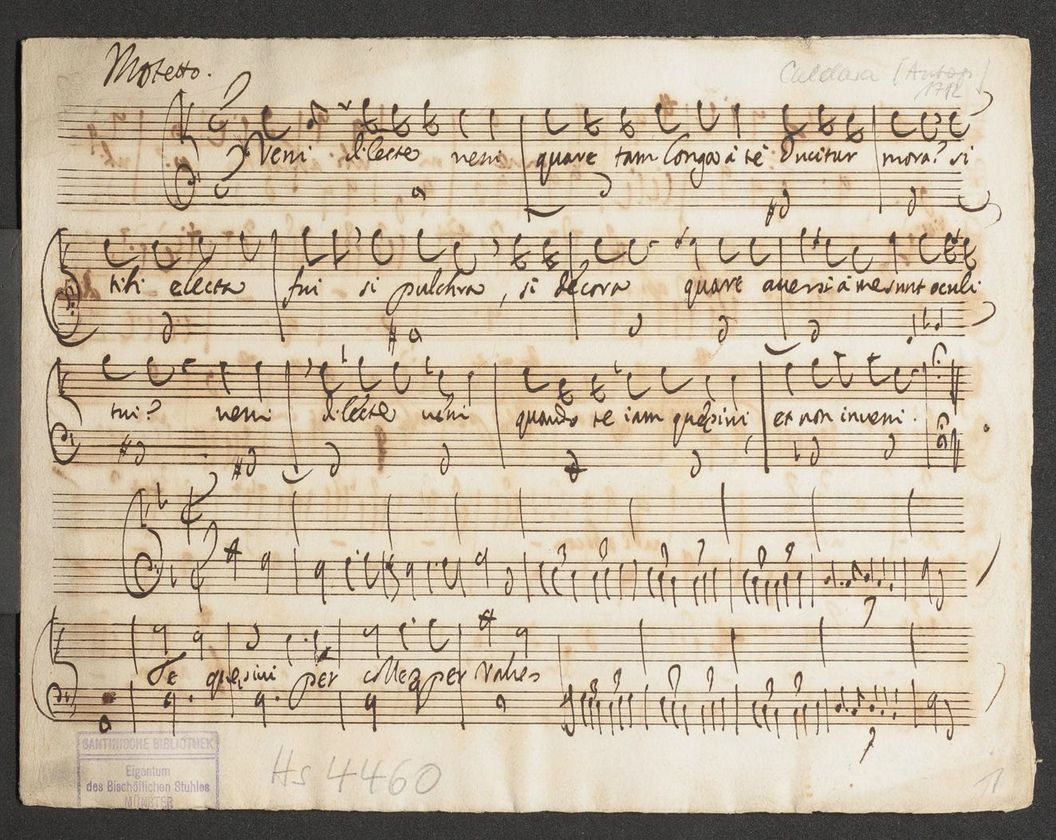 Motetto.
Caldara [Anton]
1712
Veni dilecte veni quare tam longa à te ducitur mora? si
tibi electa fui si pulchra, si decora quare aversi à me sunt oculi
tui? veni dilecte veni quando te iam quesivi et non inveni.
Te quesivi per colles per valles
SANTINISCHE BIBLIOTHEK
Eigentum
des Bischöflichen Stuhles
MÜNSTER
Hs 4460